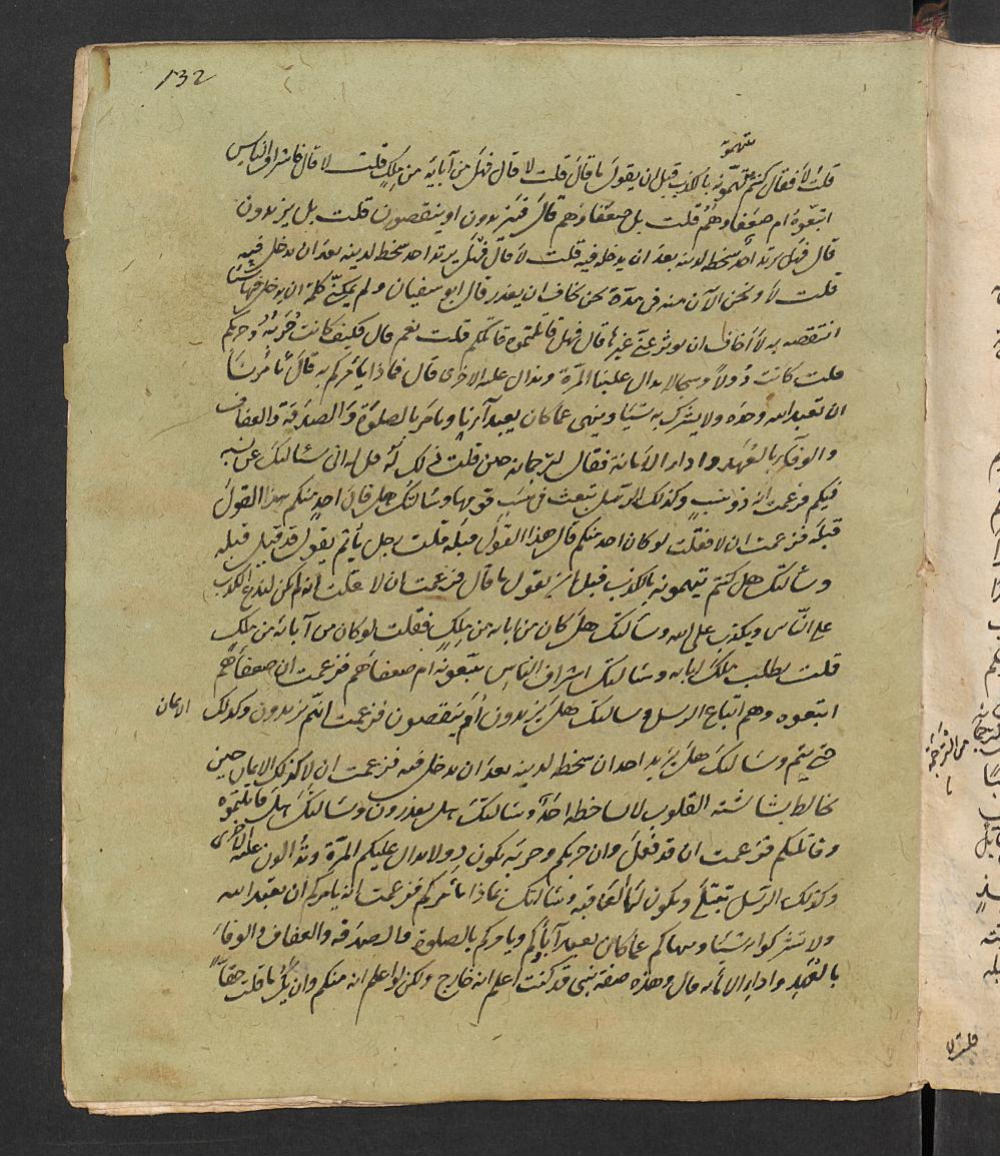 132
تتهموه
قلت لا فقال كنتم تتهمونه بالكذب قبل ان يقول ما قال قلت لا قال فهل من آبائه من ملك قلت لا قال فاشراف الناس
اتبعوه ام ضعفاؤهم قلت بل ضعفاؤهم قال فيزيدون او ينقصون قلت بل يزيدون
قال فهل يرتد احد سخطة لدينه بعد ان يدخل فيه قلت لا قال فهل يرتد احد سخطة لدينه بعد ان يدخل فيه
قلت لا ونحن الآن منه في مدة نحن نخاف ان يغدر قال ابو سفيان ولم يمكنّي كلمة ان يدخل فيها شيئا
انتقصه به لا أخاف ان يوثر عنّي غيرها قال فهل قاتلتموه قاتلكم قلت نعم قال فكيف كانت حربه وحربكم
قلت كانت دُولاً وسجالا يدال علينا المرة وندال عليه الاخرى قال فماذا يأمركم به قال يأمرنا
ان نعبد الله وحده ولا يشرك به شيئا وينهى عما كان يعبد آباؤنا ويامر بالصلوة والصدقة والعفاف
والوفاء بالعهد واداء الأمانة فقال لترجمانه حين قلت ذلك له قل له اني سألتك عن نسبه
فيكم فزعمت انه ذو نسب وكذلك الرسل تبعث في نسب قومها وسألتك هل قال احد منكم هذا القول
قبله فزعمت ان لا فقلت لو كان احد منكم قال هذا القول قبله قلت رجل يأتم بقول قد قيل قبله
وسألتك هل كنتم تتهمونه بالكذب قبل ان يقول ما قال فزعمت ان لا فقلت انه لم يكن ليدع الكذب
على الناس ويكذب على الله وسألتك هل كان من ابائه من ملك فقلت لو كان من آبائه من ملك
قلت يطلب ملك ابائه وسألتك اشراف الناس يتبعونه ام ضعفاءهم فزعمت ان ضعفاءهم
اتبعوه وهم اتباع الرسل وسالتك هل يزيدون او ينقصون فزعمت انهم يزيدون وكذلك الايمان
حتى يتم وسألتك هل يرتد احد ان سخط لدينه بعد ان يدخل فيه فزعمت ان لا كذلك الايمان حين
تخالط بشاشته القلوب لا يسخطه احد وسالتك هل يغدرون وسالتك هل قاتلتموه
وقاتلكم فزعمت ان قد فعل وان حربكم وحربه يكون دولا يدال عليكم المرة وتدالون عليه الاخرى
وكذلك الرسل تبتلى ويكون لها العاقبة وسألتك بماذا يأمركم فزعمت انه يامركم ان نعبد الله
ولا تشركوا به شيئا وينهاكم عما كان يعبد آباؤكم ويامركم بالصلوة والصدقة والعفاف والوفاء
بالعهد واداء الامانة قال وهذه صفة نبي قد كنت اعلم انه خارج ولكن لم اعلم انه منكم وان يك ما قلت حقا
من الترجمة
قلت لا